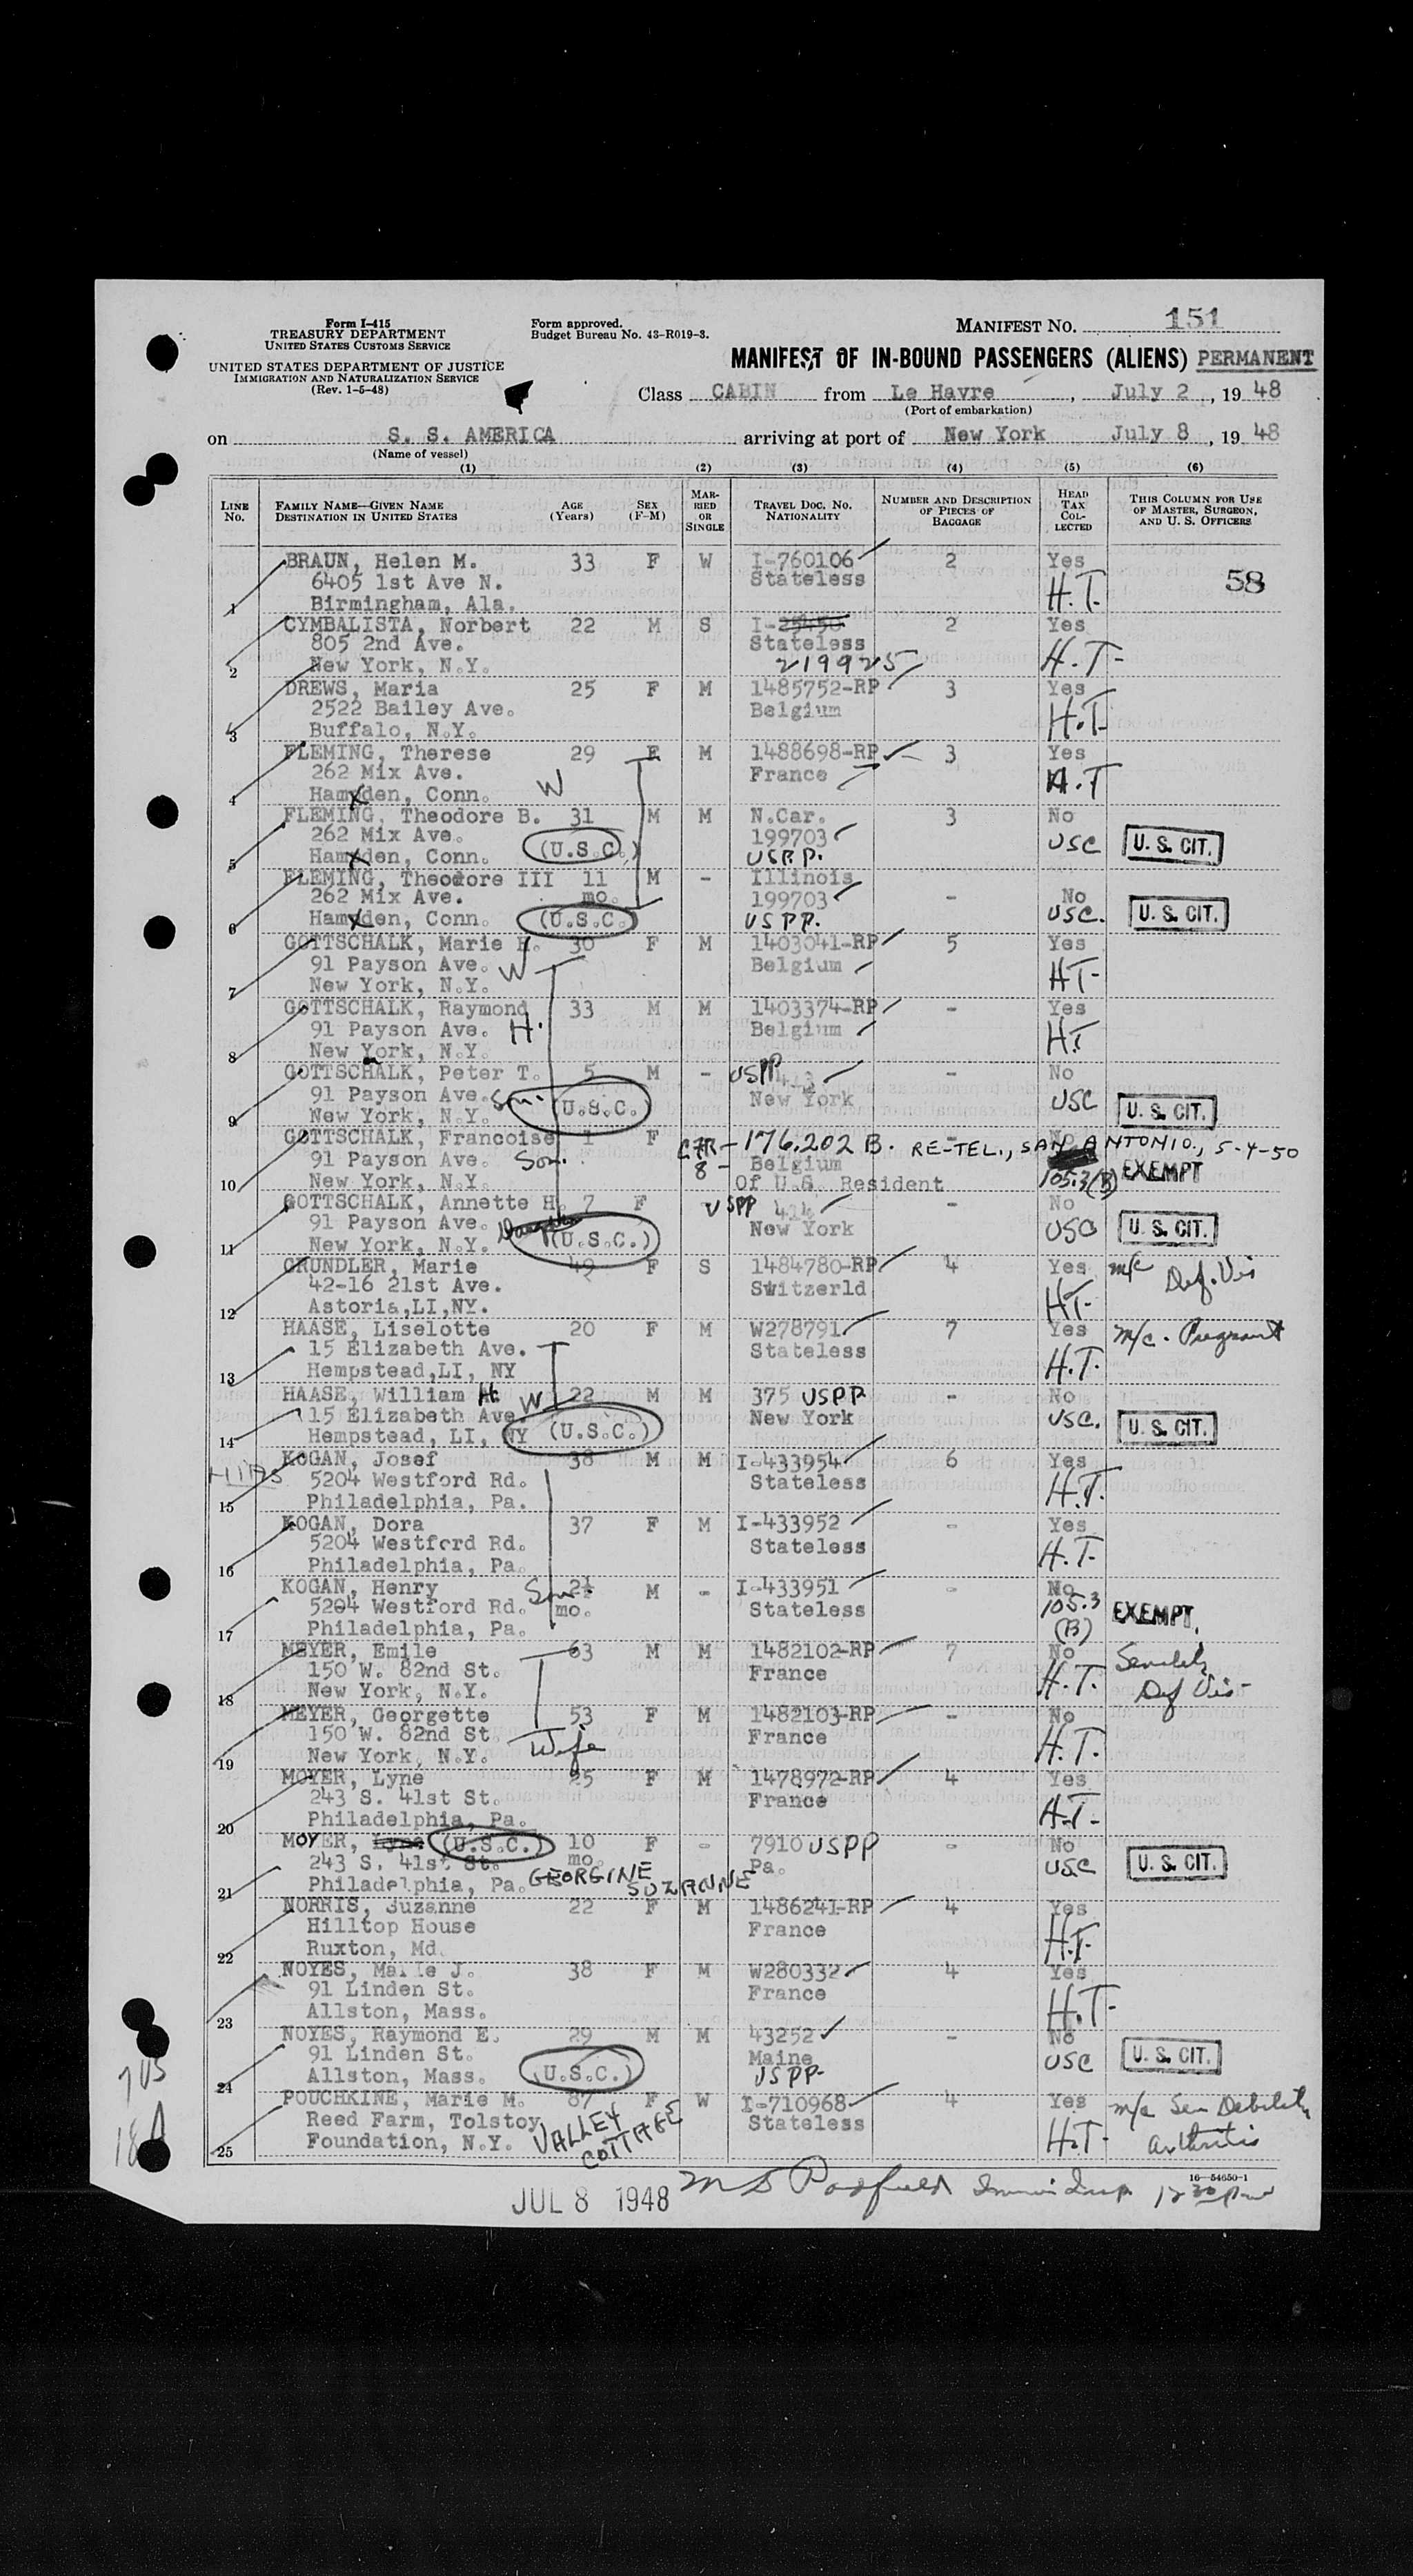 Form I-415
TREASURY DEPARTMENT
UNITED STATES CUSTOMS SERVICE
UNITED STATES DEPARTMENT OF JUSTICE
IMMIGRATION AND NATURALIZATION SERVICE
(Rev. 1-5-48)
Form approved.
Budget Bureau No. 43-R019-3.
MANIFEST NO. 151
MANIFEST OF IN-BOUND PASSENGERS (ALIENS) PERMANENT
Class CABIN from Le Havre, July 2, 19 48
(Port of embarkation)
on S. S. AMERICA arriving at port of New York July 8, 19 48
(Name of vessel)
(1) (2) (3) (4) (5) (6)
LINE No. FAMILY NAME—GIVEN NAME DESTINATION IN UNITED STATES AGE (Years) SEX (F-M) MARRIED OR SINGLE TRAVEL DOC. NO. NATIONALITY NUMBER AND DESCRIPTION OF PIECES OF BAGGAGE HEAD TAX COLLECTED THIS COLUMN FOR USE OF MASTER, SURGEON, AND U. S. OFFICERS
BRAUN, Helen M. 33 F W I-760106 2 Yes
6405 1st Ave N. Stateless H.T. 58
1 Birmingham, Ala.
CYMBALISTA, Norbert 22 M S I- 2 Yes
805 2nd Ave. Stateless
2 New York, N.Y. 219925 H.T.
DREWS, Maria 25 F M 1485752-RP 3 Yes
2522 Bailey Ave. Belgium H.T.
3 Buffalo, N.Y.
FLEMING, Therese 29 F M 1488698-RP 3 Yes
262 Mix Ave. W France H.T
4 Hamden, Conn.
FLEMING, Theodore B. 31 M M N.Car. 3 No
262 Mix Ave. (U.S.C.) 199703 USC U. S. CIT.
5 Hamden, Conn. USPP.
FLEMING, Theodore III 11 M - Illinois
262 Mix Ave. mo. 199703 - No
6 Hamden, Conn. (U.S.C.) USPP. USC. U. S. CIT.
GOTTSCHALK, Marie H. 30 F M 1403041-RP 5 Yes
91 Payson Ave. W Belgium HT-
7 New York, N.Y.
GOTTSCHALK, Raymond 33 M M 1403374-RP - Yes
91 Payson Ave. H. Belgium H.T
8 New York, N.Y.
GOTTSCHALK, Peter T. 5 M - USPP 413 - No
91 Payson Ave. Son. (U.S.C.) New York USC U. S. CIT.
9 New York, N.Y.
GOTTSCHALK, Francoise 1 F 176,202 B. RE-TEL., SAN ANTONIO., 5-4-50
91 Payson Ave. Son. 8 - Belgium 105.3(B) EXEMPT
10 New York, N.Y. Of U.S. Resident
GOTTSCHALK, Annette H. 7 F USPP 414 - No
91 Payson Ave. Daughter New York USC U. S. CIT.
11 New York, N.Y. (U.S.C.)
GRUNDLER, Marie 49 F S 1484780-RP 4 Yes m/c Def. Vis
42-16 21st Ave. Switzerld HT-
12 Astoria,LI,NY.
HAASE, Liselotte 20 F M W278791 7 Yes m/c. Pregnant
15 Elizabeth Ave. Stateless H.T.
13 Hempstead,LI, NY
HAASE, William H W 22 M M 375 USPP - No
15 Elizabeth Ave. (U.S.C.) New York USC. U. S. CIT.
14 Hempstead, LI, NY
HIAS
KOGAN, Josef 38 M M I-433954 6 Yes
5204 Westford Rd. Stateless H.T.
15 Philadelphia, Pa.
KOGAN, Dora 37 F M I-433952 - Yes
5204 Westford Rd. Stateless H.T.
16 Philadelphia, Pa.
KOGAN, Henry Son 2½ M - I-433951 - No
5204 Westford Rd. mo. Stateless 105.3 (B) EXEMPT.
17 Philadelphia, Pa.
MEYER, Emile 63 M M 1482102-RP 7 No Senility
150 W. 82nd St. France H.T. Def Vis-
18 New York, N.Y.
MEYER, Georgette 53 F M 1482103-RP - No
150 W. 82nd St. Wife France H.T.
19 New York, N.Y.
MOYER, Lyne 25 F M 1478972-RP 4 Yes
243 S. 41st St. France H.T.
20 Philadelphia, Pa.
MOYER, (U.S.C.) 10 F - 7910 USPP - No
243 S. 41st St. mo. Pa. USC U. S. CIT.
21 Philadelphia, Pa. GEORGINE SUZANNE
NORRIS, Suzanne 22 F M 1486241-RP 4 Yes
Hilltop House France H.T.
22 Ruxton, Md.
NOYES, Marie J. 38 F M W280332 4 Yes
91 Linden St. France H.T-
23 Allston, Mass.
NOYES, Raymond E. 29 M M 43252 - No
91 Linden St. (U.S.C.) Maine USC U. S. CIT.
24 Allston, Mass. USPP-
POUCHKINE, Marie M. 87 F W I-710968 4 Yes m/c Sen Debility
Reed Farm, Tolstoy Stateless H.T- arthritis
25 Foundation, N.Y. VALLEY COTTAGE
16—54650-1
JUL 8 1948 M S Padfield Immi Insp. 12 30 pm